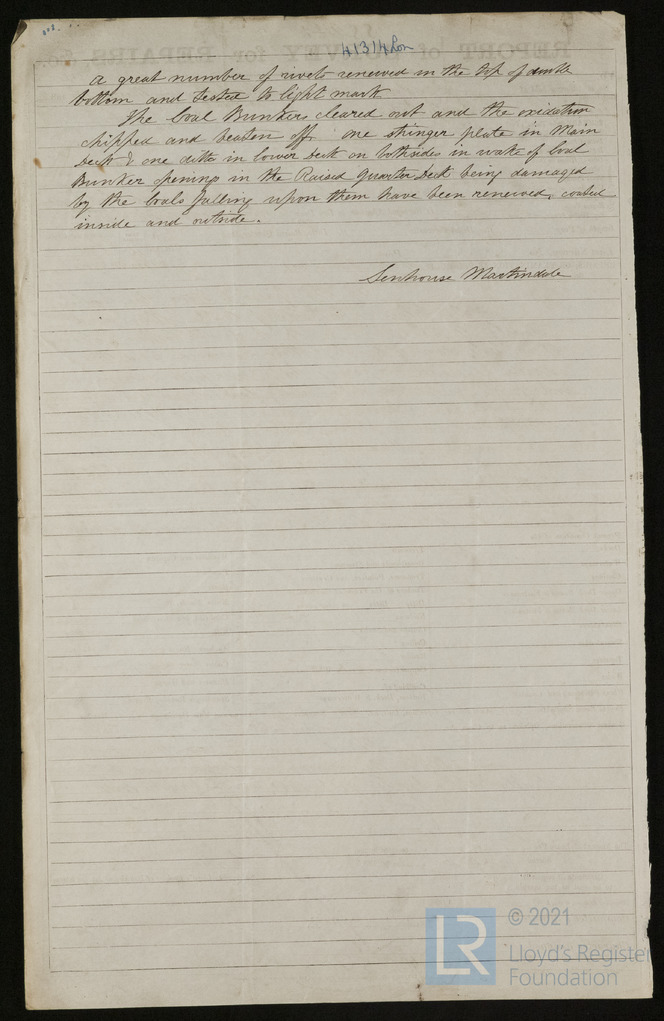 41314 Lon
a great number of rivets renewed in the top of double
bottom and tested to light mark
The Coal Bunkers cleared out and the oxidation
chipped and beaten off. one stringer plate in Main
Deck & one ditto in lower deck on bothsides in wake of Coal
Bunker openings in the Raised Quarter Deck being damaged
by the Coals falling upon them have been renewed, coated
inside and outside.
Senhouse Martindale
LR
© 2021
Lloyd's Register
Foundation